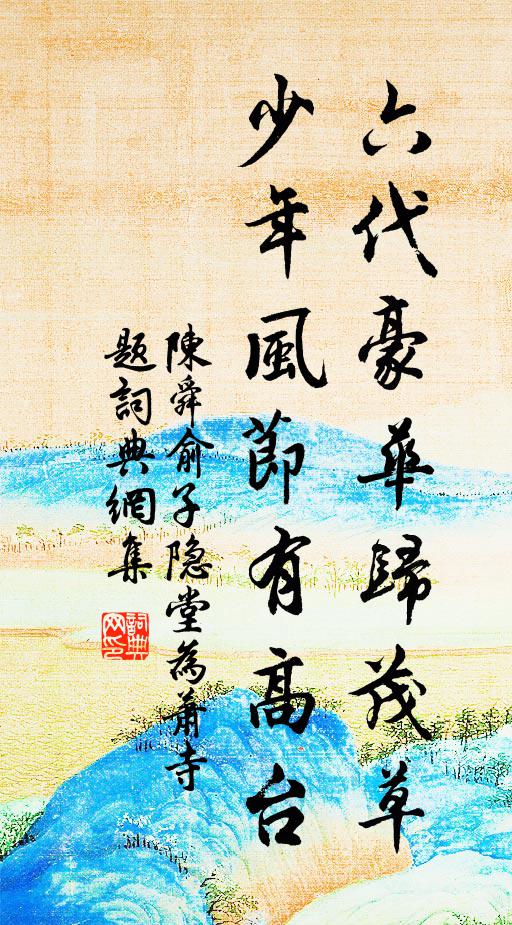 六代豪華歸茂草
少年風節有高台
陳舜俞子隐堂為蕭寺
题詞典網集
詞典网印